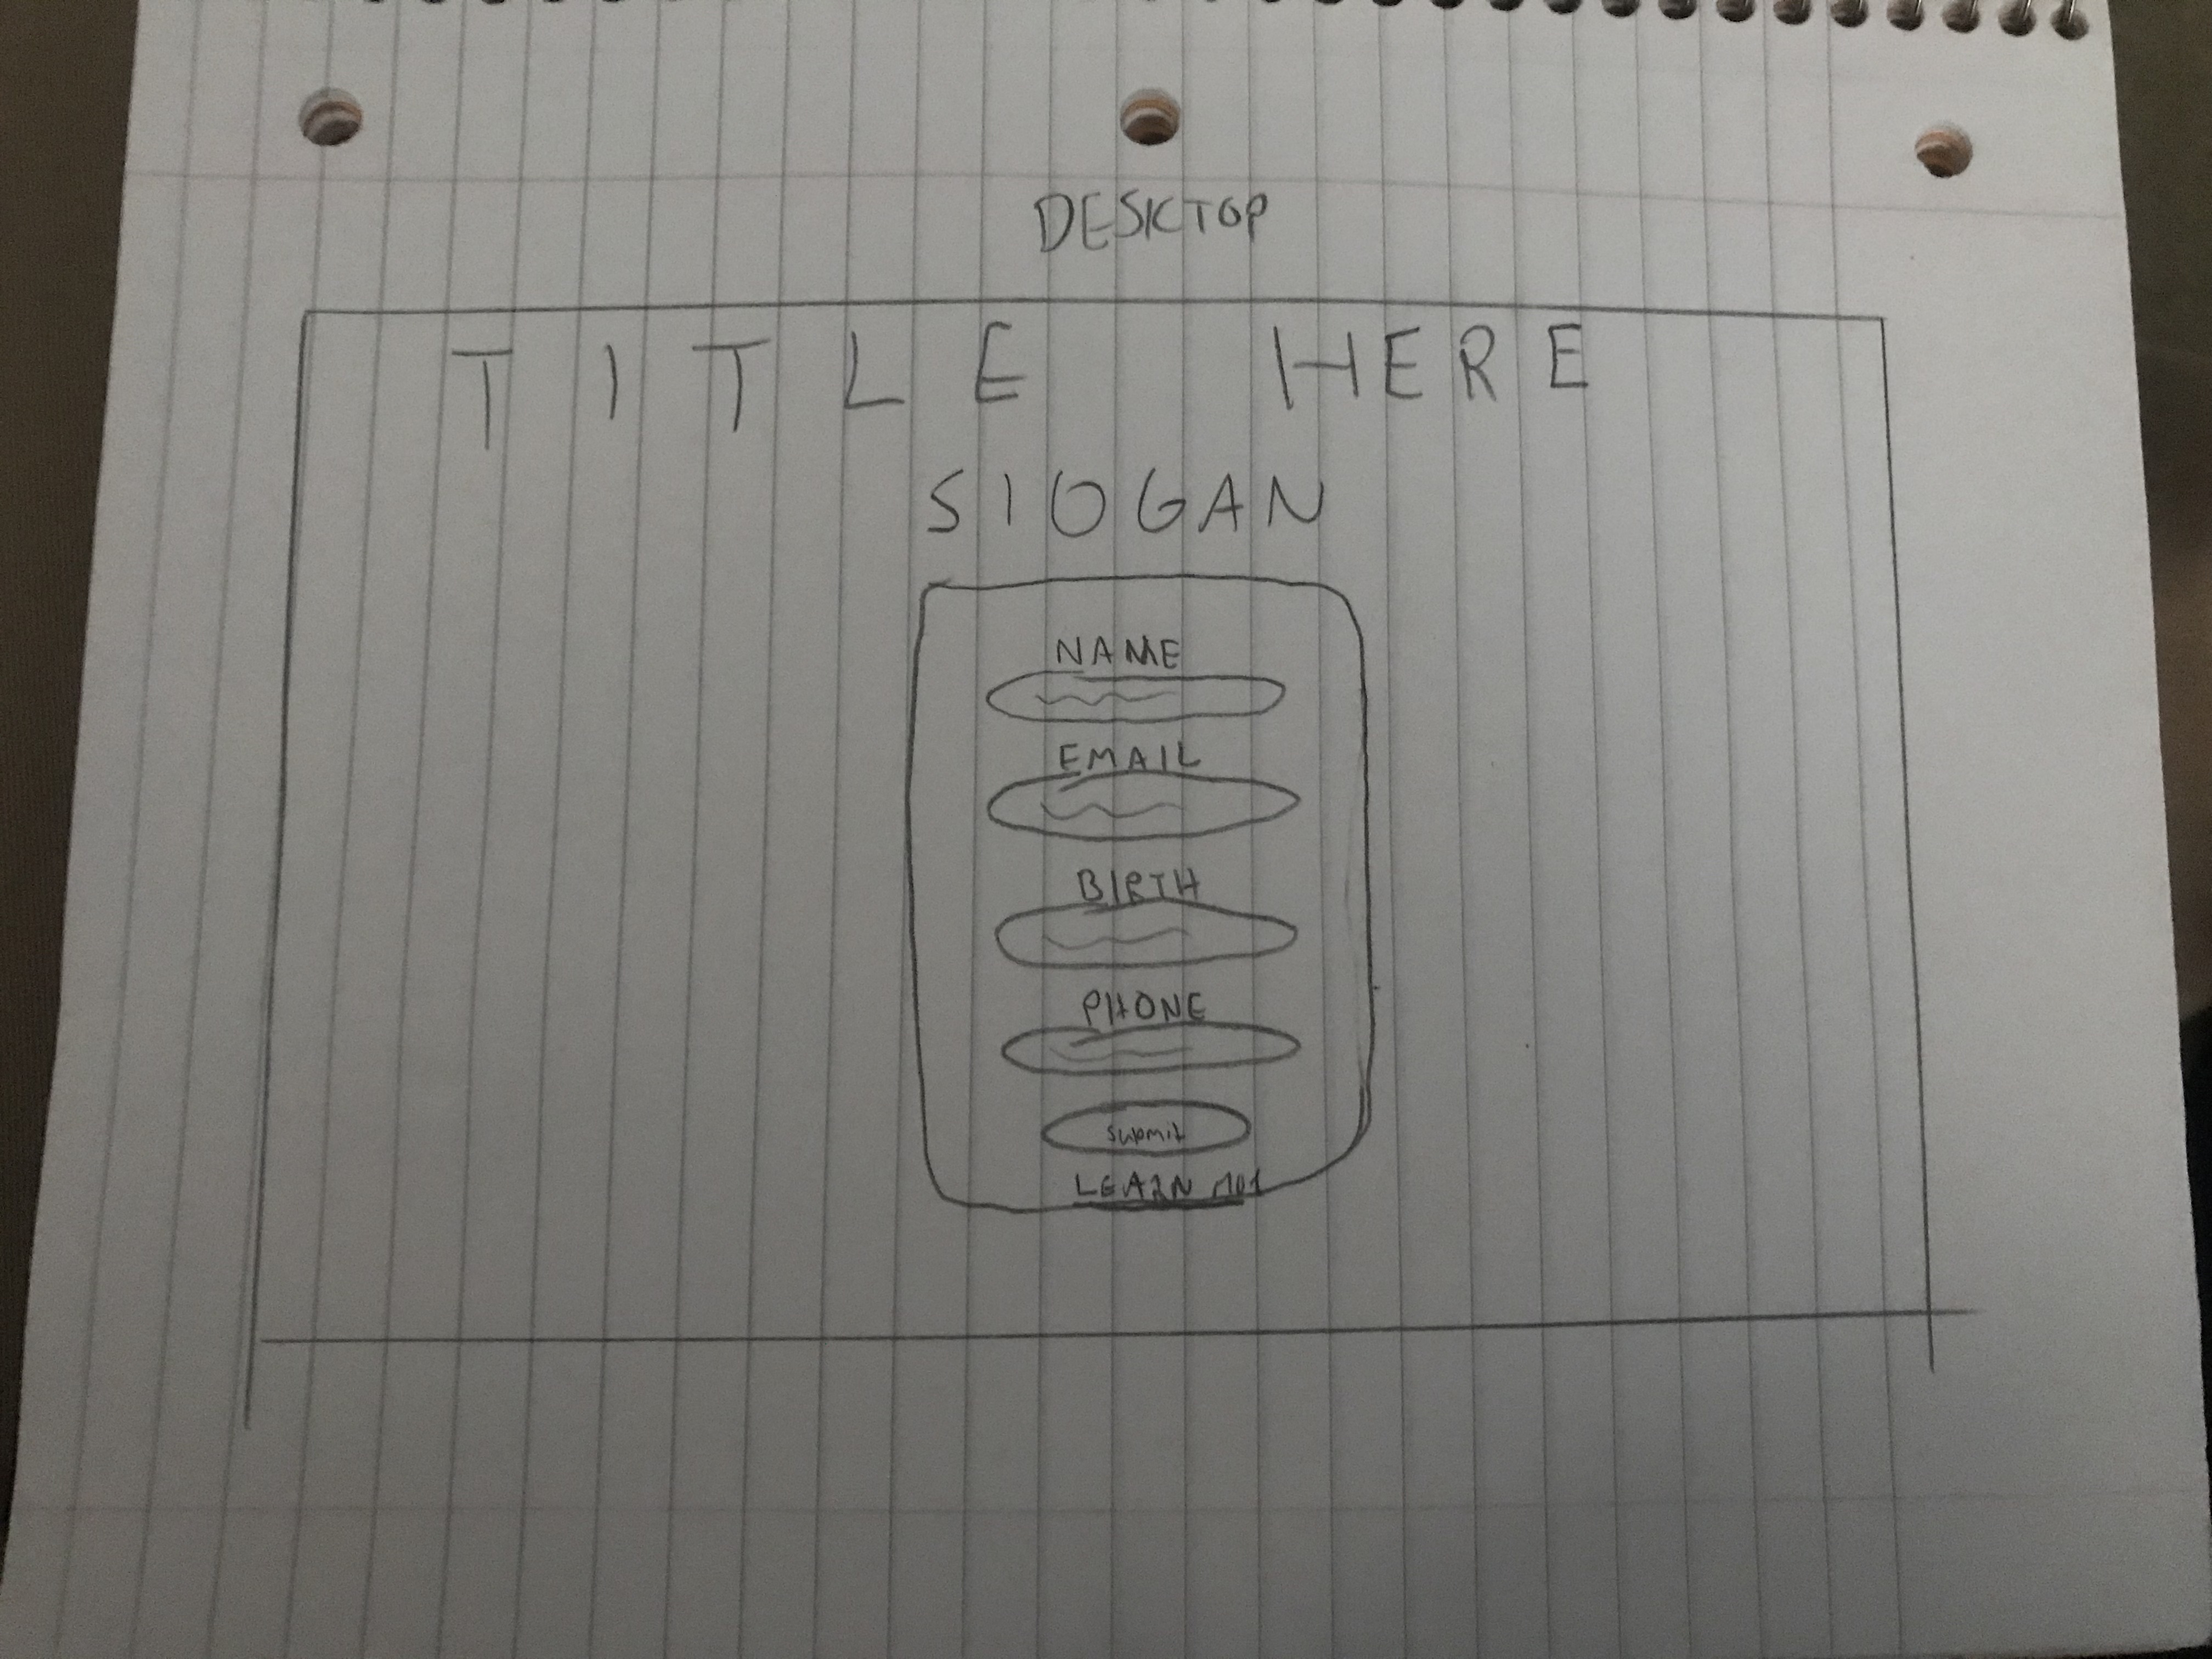 DESKTOP
TITLE HERE
SLOGAN
NAME
EMAIL
BIRTH
PHONE
submit
LEARN